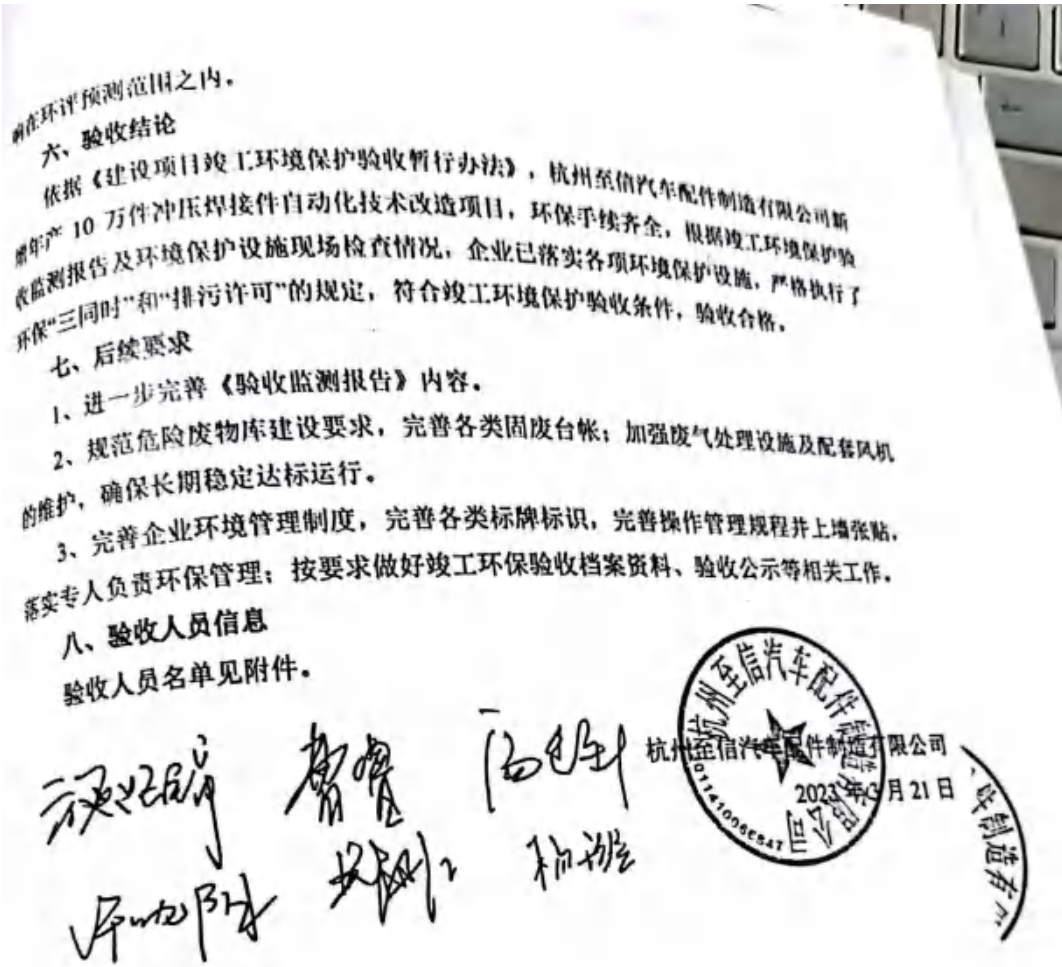 响在环评预测范围之内。
六、验收结论
依据《建设项目竣工环境保护验收暂行办法》，杭州至信汽车配件制造有限公司新
增年产 10 万件冲压焊接件自动化技术改造项目，环保手续齐全，根据竣工环境保护验
收监测报告及环境保护设施现场检查情况，企业已落实各项环境保护设施，严格执行了
环保“三同时”和“排污许可”的规定，符合竣工环境保护验收条件，验收合格。
七、后续要求
1、进一步完善《验收监测报告》内容。
2、规范危险废物库建设要求，完善各类固废台帐；加强废气处理设施及配套风机
的维护，确保长期稳定达标运行。
3、完善企业环境管理制度，完善各类标牌标识，完善操作管理规程并上墙张贴，
落实专人负责环保管理；按要求做好竣工环保验收档案资料、验收公示等相关工作。
八、验收人员信息
验收人员名单见附件。
杭州至信汽车配件制造有限公司
杭州至信汽车配件制造有限公司
2023 年 月 21 日
件制造有